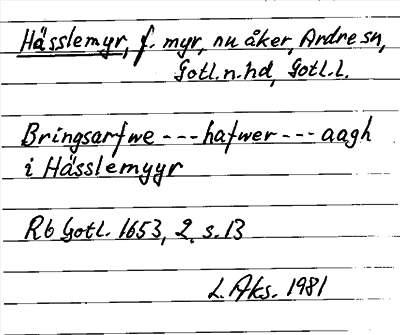 Hässlemyr, f. myr, nu åker, Andre sn,
Gotl.n.hd, Gotl.l.
Bringsarfwe --- hafwer --- aagh
i Hässlemyyr
Rb Gotl. 1653, 2, s. 13
L. Aks. 1981